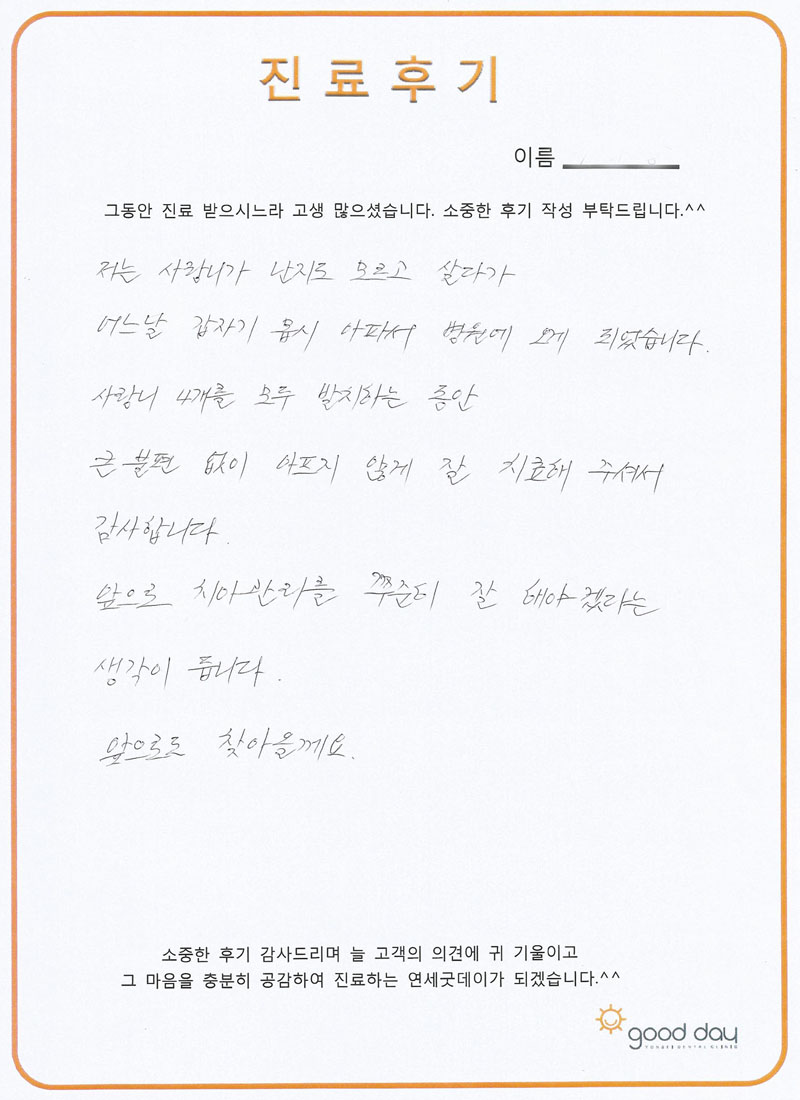 진료후기
이름
그동안 진료 받으시느라 고생 많으셨습니다. 소중한 후기 작성 부탁드립니다.^^
저는 사랑니가 난지도 모르고 살다가
어느날 갑자기 몹시 아파서 병원에 오게 되었습니다.
사랑니 4개를 모두 발치하는 동안
큰 불편 없이 아프지 않게 잘 치료해 주셔서
감사합니다.
앞으로 치아관리를 꾸준히 잘 해야겠다는
생각이 듭니다.
앞으로도 찾아올께요.
소중한 후기 감사드리며 늘 고객의 의견에 귀 기울이고
그 마음을 충분히 공감하여 진료하는 연세굿데이가 되겠습니다.^^
good day
YONSEI DENTAL CLINIC